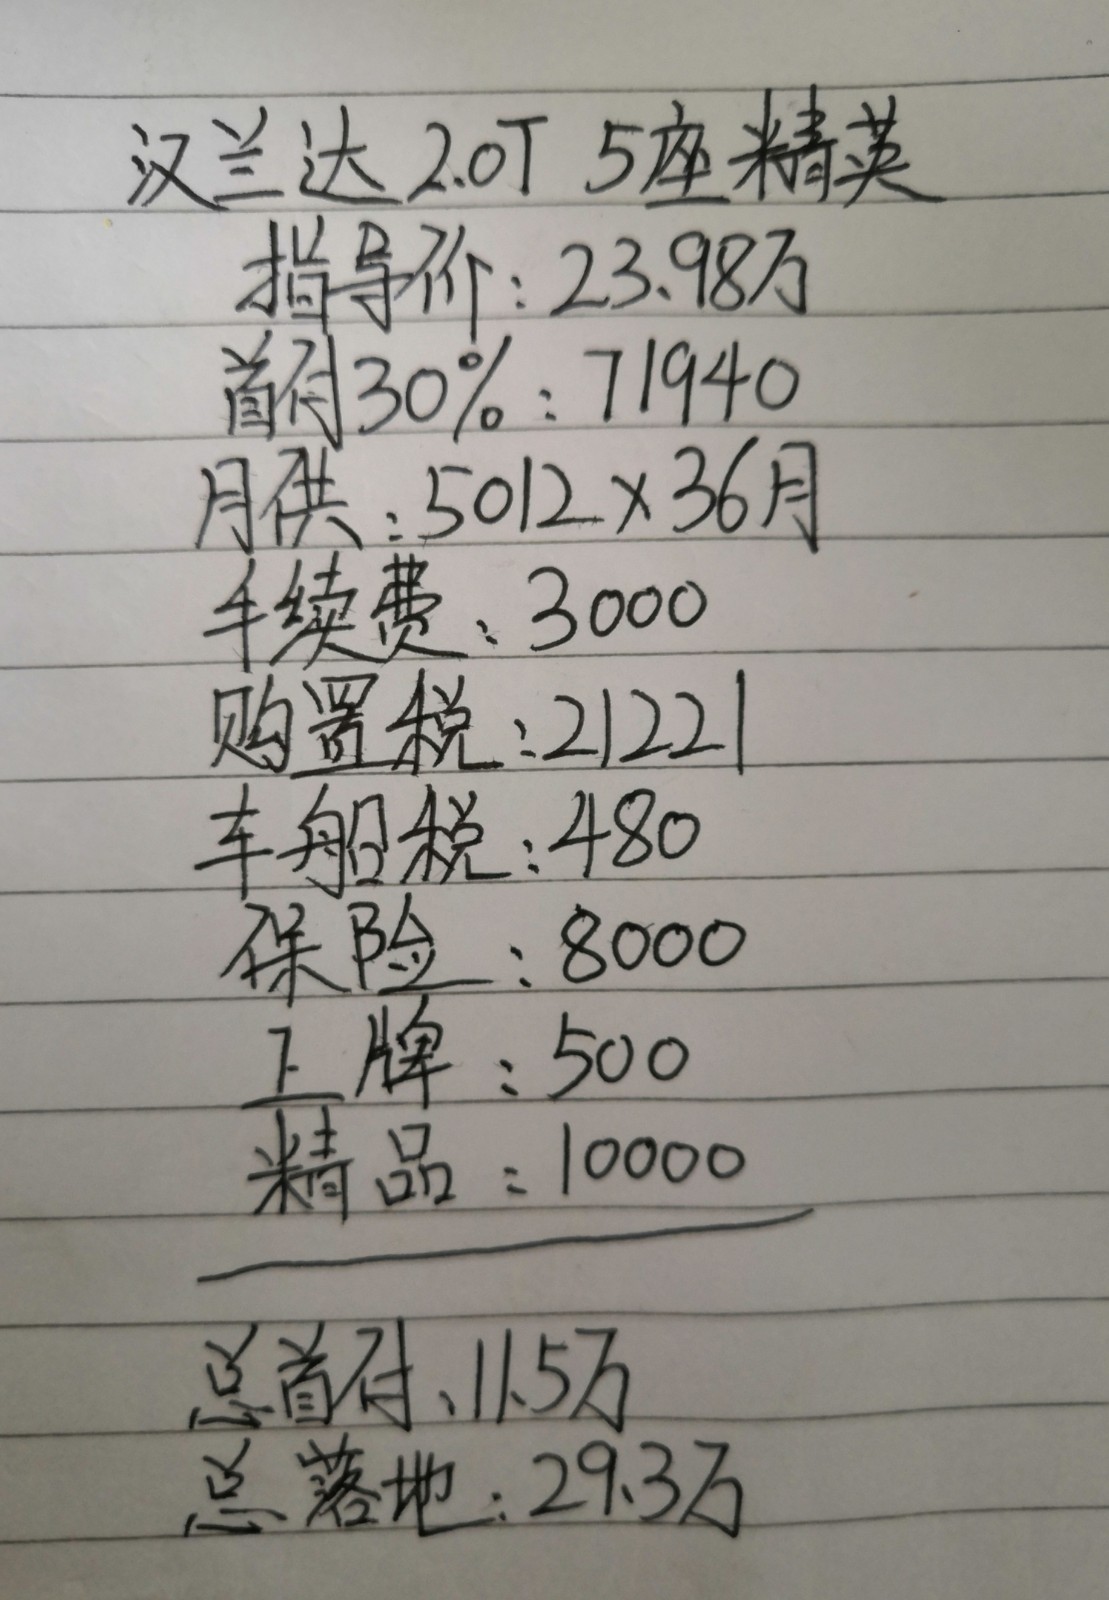 汉兰达 2.0T 5座精英
指导价:23.98万
首付30%:71940
月供:5012×36月
手续费:3000
购置税:21221
车船税:480
保险:8000
上牌:500
精品:10000
总首付、11.5万
总落地:29.3万